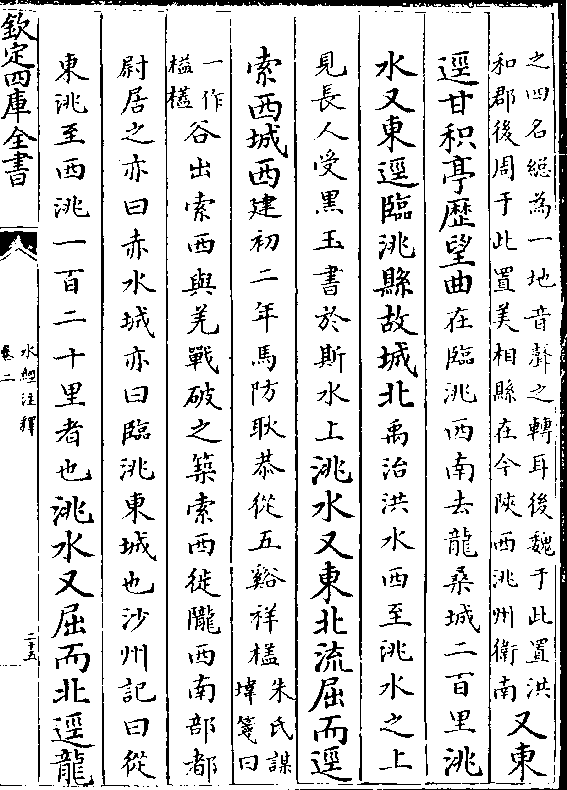 之四名總為一地音聲之轉耳後魏于此置洪
和郡後周于此置美相縣在今陝西洮州衛南
又東
逕甘枳亭歷望曲在臨洮西南去龍桑城二百里洮
水又東逕臨洮縣故城北禹治洪水西至洮水之上
見長人受黑玉書於斯水上洮水又東北流屈而逕
索西城西建初二年馬防耿恭從五谿祥𣜬
朱氏謀
㙔箋曰
一作
榼𣜬
谷出索西與羌戰破之築索西徙隴西南部都
尉居之亦曰赤水城亦曰臨洮東城也沙州記曰從
東洮至西洮一百二十里者也洮水又屈而北逕龍
欽定四庫全書
水經注釋
卷二
二十五